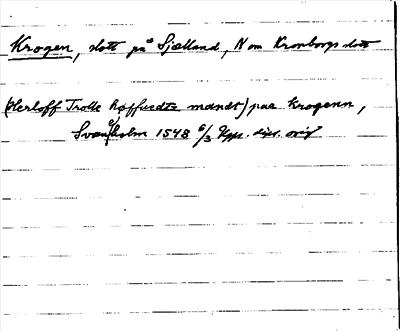 Krogen, slott på Sjælland, N om Kronborgs slott
(Herloff Trolle høffuedts mandt) paa Krogenn,
Svanholm 1548 6/3 Upps. dipl. orig